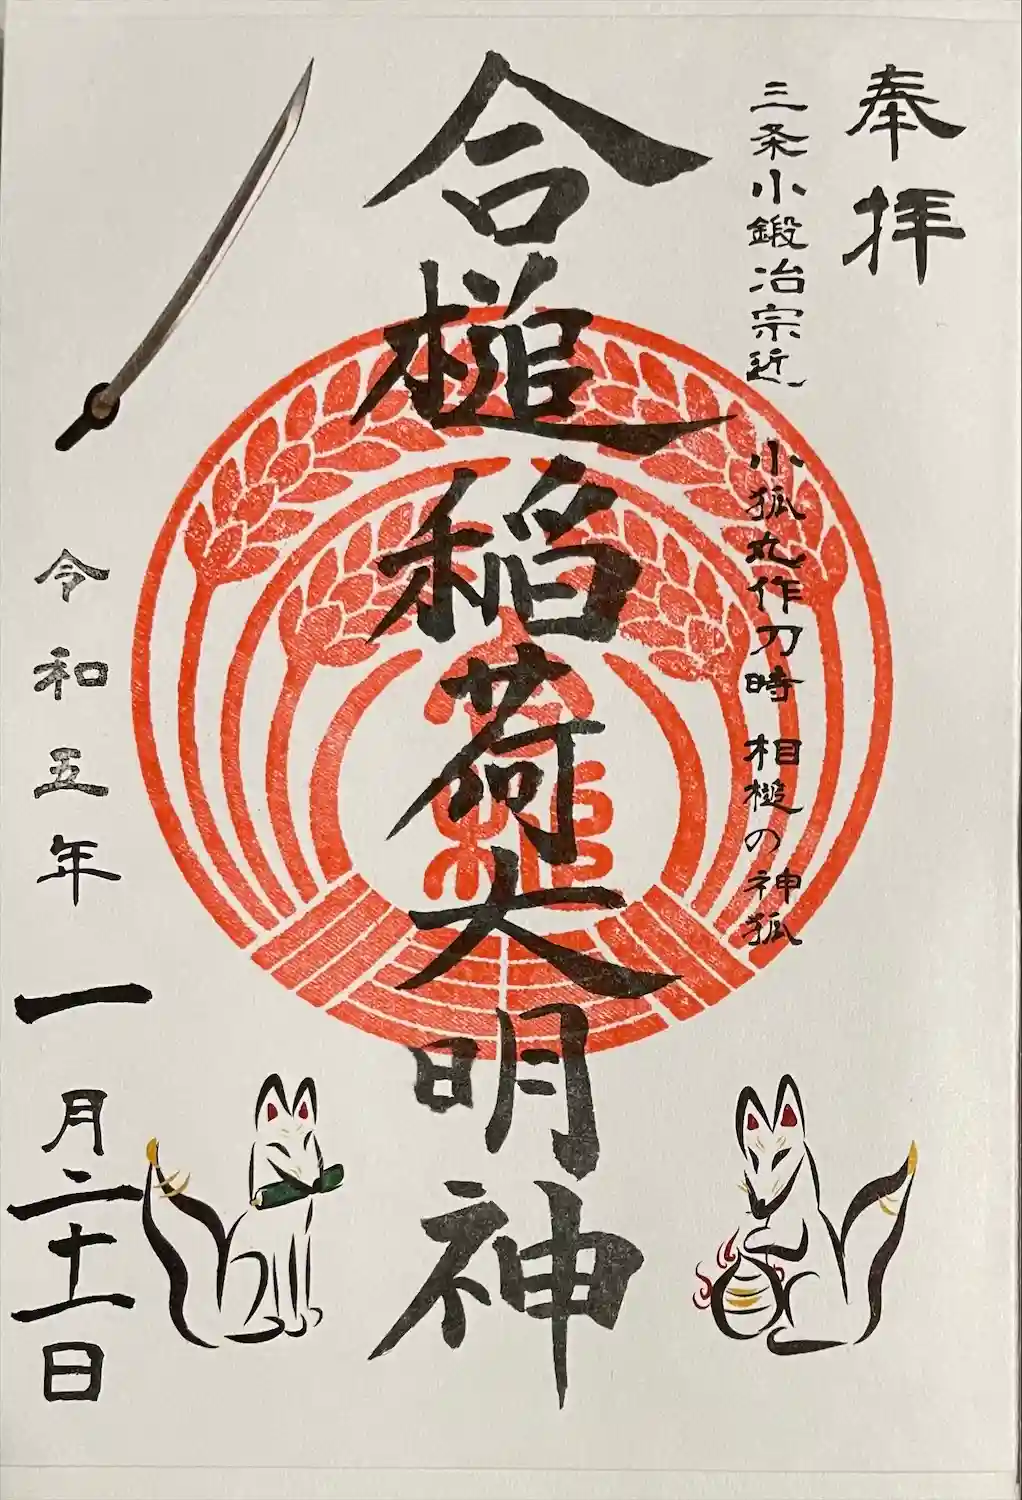 奉拝
三条小鍛冶宗近
小狐丸作刀時 相槌の神狐
合槌稲荷大明神
令和五年
一月二十一日